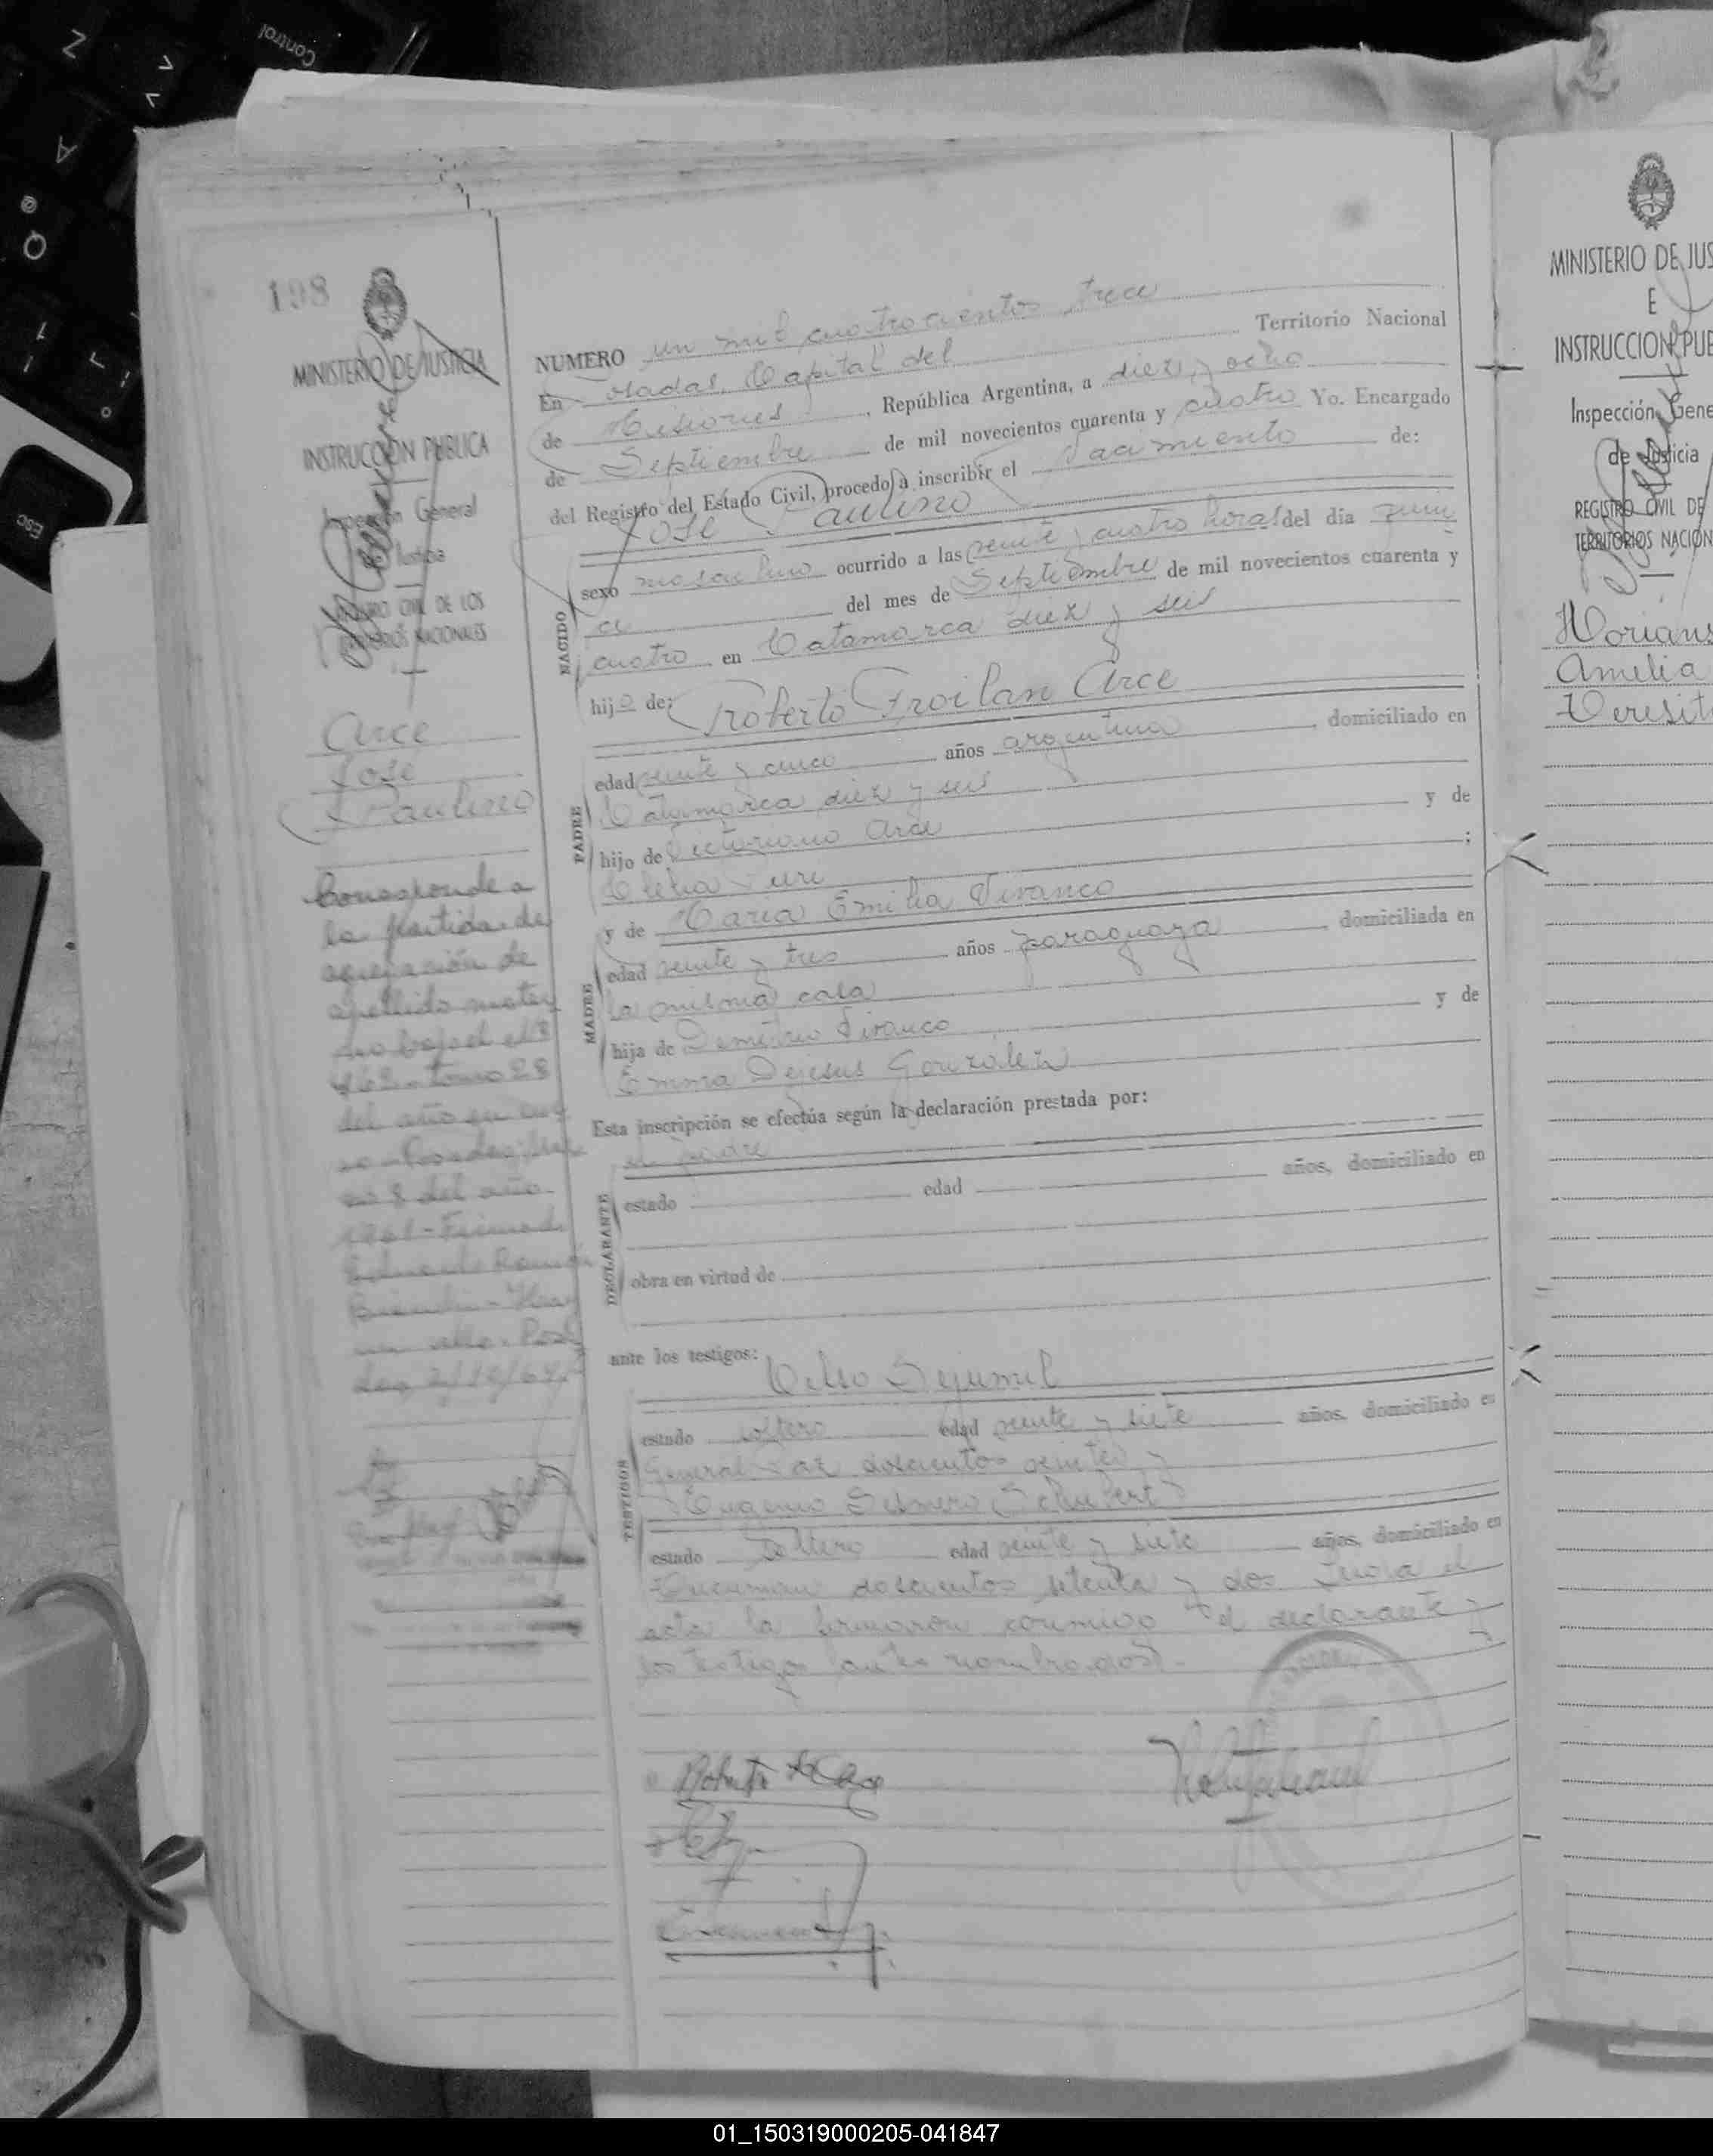 Control
Z
A
Q
Esc
198
MINISTERIO DE JUSTICIA
E
INSTRUCCION PUBLICA
Inspección General
de Justicia
REGISTRO CIVIL DE LOS
TERRITORIOS NACIONALES
Arce
José
Paulino
Corresponde a
la partida de
agregación de
apellido mater
no bajo el Nº
162 - tomo 28
del año en cur
so - Posadas,
8 del año
1961 -
2/10/64
NUMERO un mil cuatrocientos trece
En Posadas, Capital del Territorio Nacional
de Misiones, República Argentina, a diez y ocho
de Septiembre de mil novecientos cuarenta y cuatro Yo. Encargado
del Registro del Estado Civil, procedo a inscribir el Nacimiento de:
José Paulino
NACIDO
sexo masculino ocurrido a las veinte y cuatro horas del día quin
ce del mes de Septiembre de mil novecientos cuarenta y
cuatro en Catamarca diez y seis
hijo de: Roberto Froilan Arce
PADRE
edad veinte y cinco años argentino, domiciliado en
Catamarca diez y seis
hijo de Victoriano Arce y de
;
y de Maria Emilia Vivanco
MADRE
edad veinte y tres años paraguaya, domiciliada en
la misma casa
hija de Demetrio Vivanco y de
Emma Dejesus González
Esta inscripción se efectúa según la declaración prestada por:
el padre
DECLARANTE
estado edad años, domiciliado en
obra en virtud de
ante los testigos:
Celso Sejumil
TESTIGOS
estado soltero edad veinte y siete años, domiciliado en
General Paz doscientos veinte y
Eugenio Schubert
estado soltero edad veinte y siete años, domiciliado en
Tucuman doscientos setenta y dos Leida el
acta la firmaron conmigo el declarante y
los testigos antes nombrados.-
MINISTERIO DE JUS
E
INSTRUCCION PUB
Inspección Gene
de Justicia
REGISTRO CIVIL DE
TERRITORIOS NACION
Amelia
Teresit
01_150319000205-041847